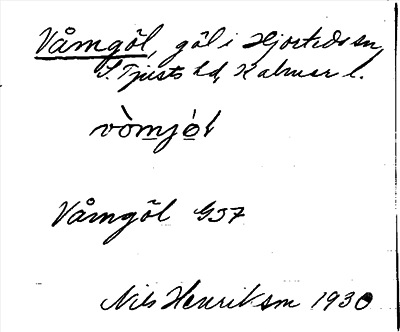 Våmgöl, göl i Hjorteds sn,
S. Tjusts hd, Kalmar l.
vò̀mjö́l
Våmgöl G37
Nils Henriksson 1930